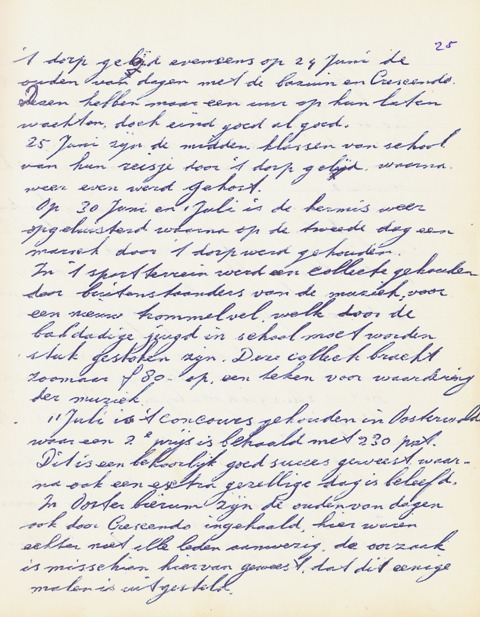 25
't dorp geleid eveneens op 24 Juni de
ouden van dagen met de bazuin en Crescendo.
Dezen hebben maar een uur op hun laten
wachten, doch eind goed al goed.
25 Juni zijn de midden klassen van school
van hun reisje door 't dorp geleid, waarna
weer even werd gehost.
Op 30 Juni en 1 Juli is de kermis weer
opgeluisterd waarna op de tweede dag een
marsch door 't dorp werd gehouden.
In 't sportterrein werd een collecte gehouden
door buitenstaanders van de muziek, voor
een nieuw trommelvel, welk door de
baldadige jeugd in school moet worden
stuk gestoken zijn. Deze collecte bracht
zoomaar f 80,- op, een teken voor waardering
der muziek.
11 Juli is 't concours gehouden in Oosterwolde
waar een 2e prijs is behaald met 230 pnt.
Dit is een behoorlijk goed succes geweest waar-
na ook een extra gezellige dag is beleefd.
In Oosterbierum zijn de ouden van dagen
ook door Crescendo ingehaald, hier waren
echter niet alle leden aanwezig, de oorzaak
is misschien hiervan geweest, dat dit eenige
malen is uitgesteld.